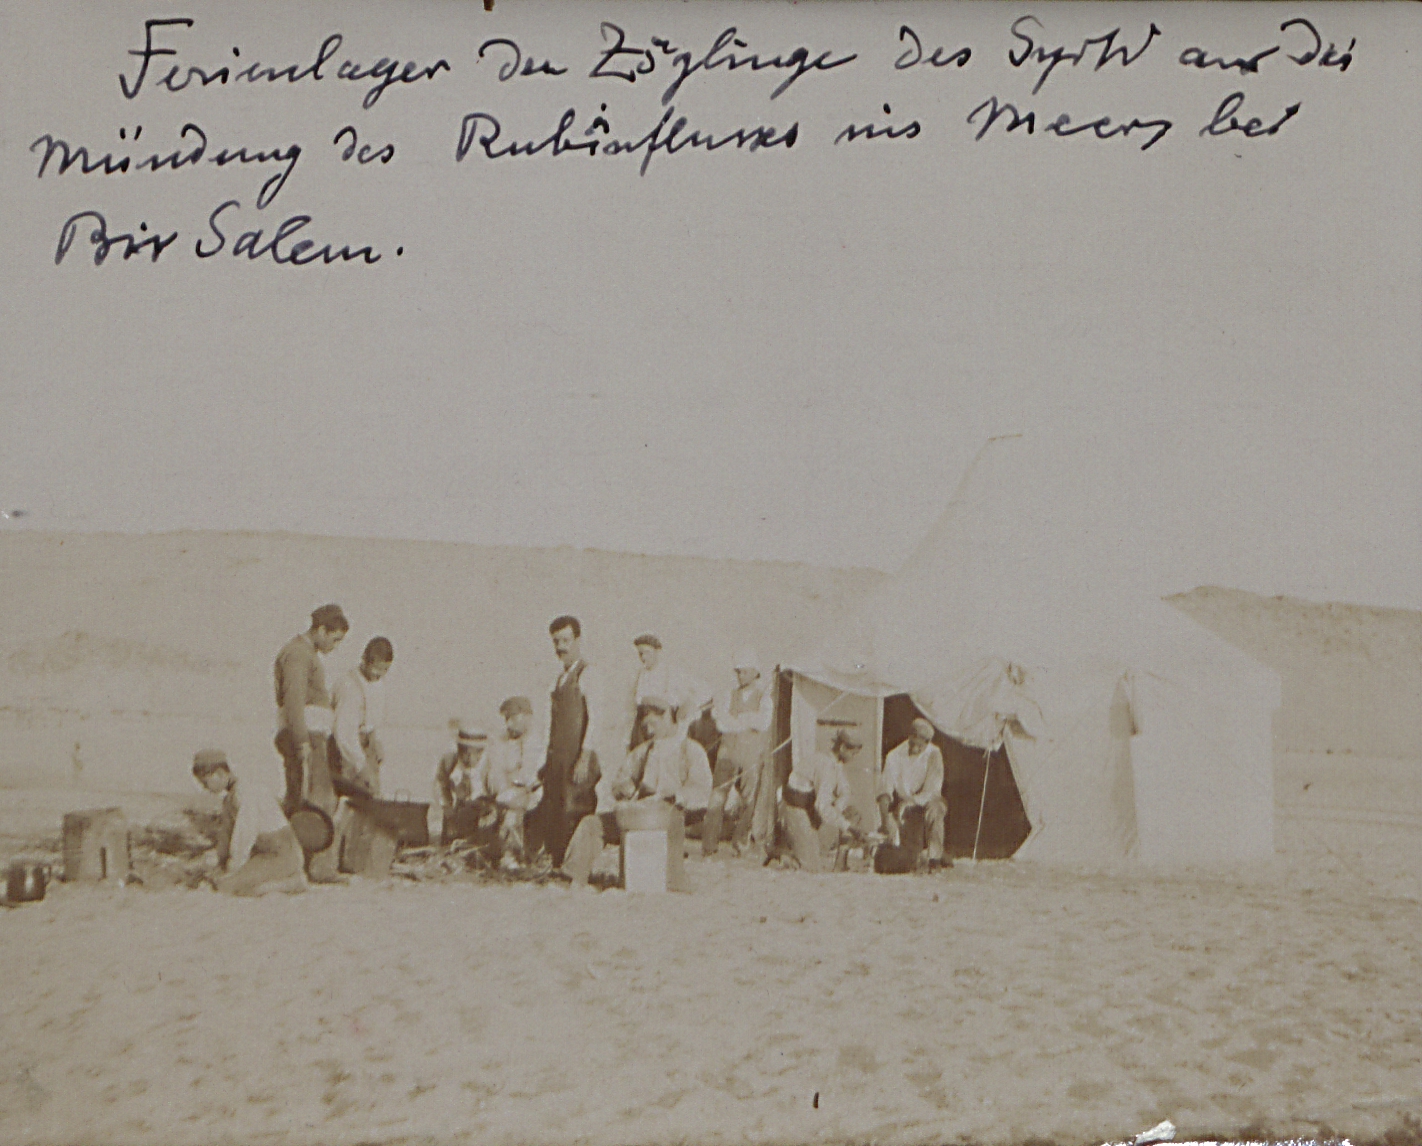 Ferienlager der Zöglinge des SyrW an der
Mündung des Rubînflusses ins Meer, bei
Bir Salem.